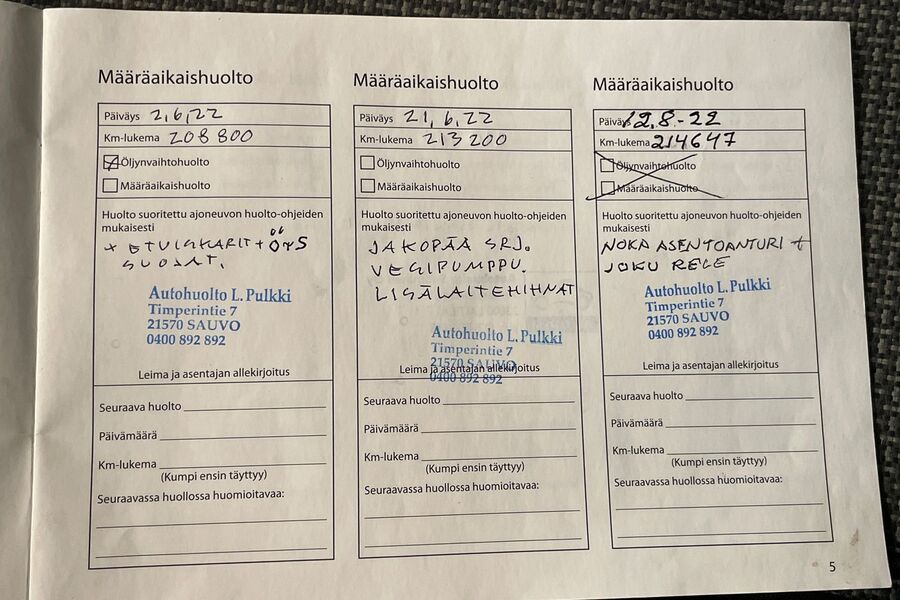 Määräaikaishuolto
Päiväys 2,6,22
Km-lukema 208 800
Öljynvaihtohuolto
Määräaikaishuolto
Huolto suoritettu ajoneuvon huolto-ohjeiden
mukaisesti
+ ETUISKARIT + ÖYS
SUODAT.
Autohuolto L. Pulkki
Timperintie 7
21570 SAUVO
0400 892 892
Leima ja asentajan allekirjoitus
Seuraava huolto
Päivämäärä
Km-lukema
(Kumpi ensin täyttyy)
Seuraavassa huollossa huomioitavaa:
Määräaikaishuolto
Päiväys 21,6,22
Km-lukema 213 200
Öljynvaihtohuolto
Määräaikaishuolto
Huolto suoritettu ajoneuvon huolto-ohjeiden
mukaisesti
JAKOPÄÄ SRJ.
VESIPUMPPU.
LISÄLAITEHIHNAT
Autohuolto L. Pulkki
Timperintie 7
21570 SAUVO
Leima ja asentajan allekirjoitus
0400 892 892
Seuraava huolto
Päivämäärä
Km-lukema
(Kumpi ensin täyttyy)
Seuraavassa huollossa huomioitavaa:
Määräaikaishuolto
Päiväys 12.8.-22
Km-lukema 214647
Öljynvaihtohuolto
Määräaikaishuolto
Huolto suoritettu ajoneuvon huolto-ohjeiden
mukaisesti
NOKA ASENTOANTURI +
JOKU RELE
Autohuolto L. Pulkki
Timperintie 7
21570 SAUVO
0400 892 892
Leima ja asentajan allekirjoitus
Seuraava huolto
Päivämäärä
Km-lukema
(Kumpi ensin täyttyy)
Seuraavassa huollossa huomioitavaa:
5